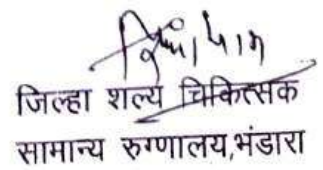 जिल्हा शल्य चिकित्सक
सामान्य रुग्णालय,भंडारा